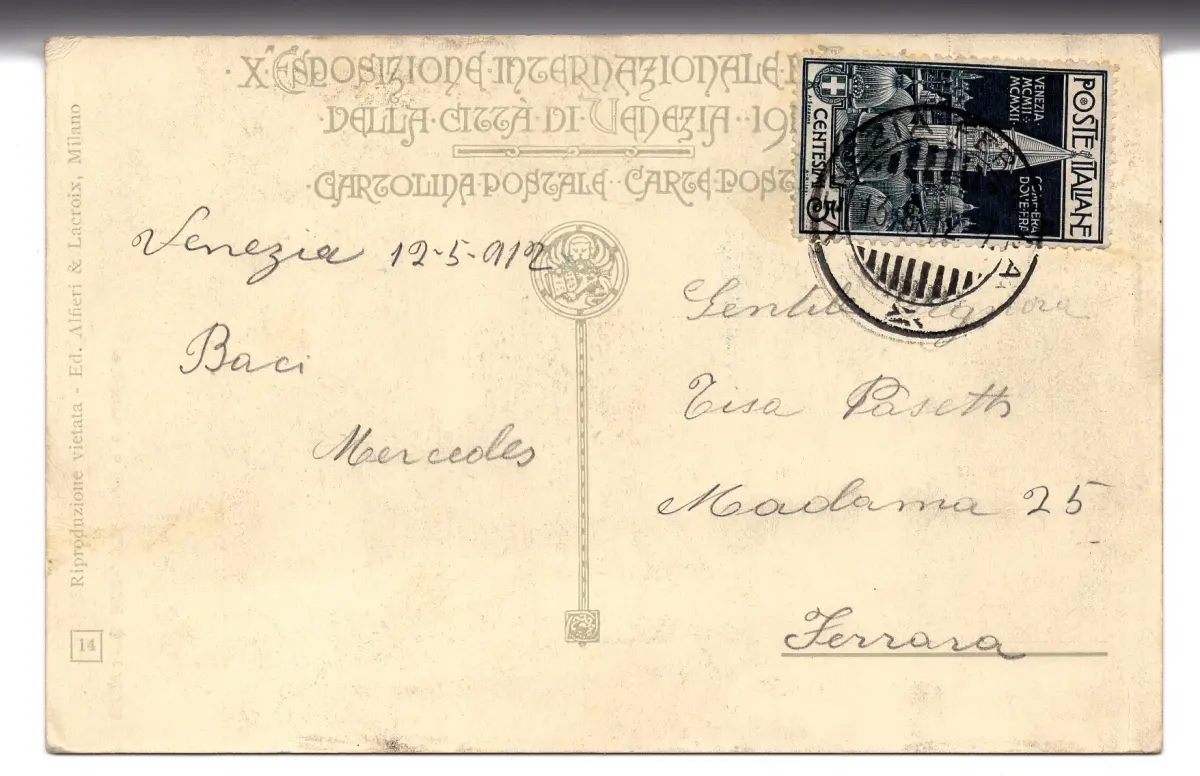 X. ESPOSIZIONE·INTERNAZIONALE
DELLA·CITTÀ·DI·VENEZIA·191
CARTOLINA·POSTALE CARTE·POST
POSTE ITALIANE
VENEZIA
MCMII
MCMXII
COM'ERA
DOV'ERA
CENTESIMI 5
Venezia 12-5-912
Baci
Mercedes
Gentile Signora
Tisa Pasetti
Madama 25
Ferrara
Riproduzione vietata - Ed. Alfieri & Lacroix, Milano
14